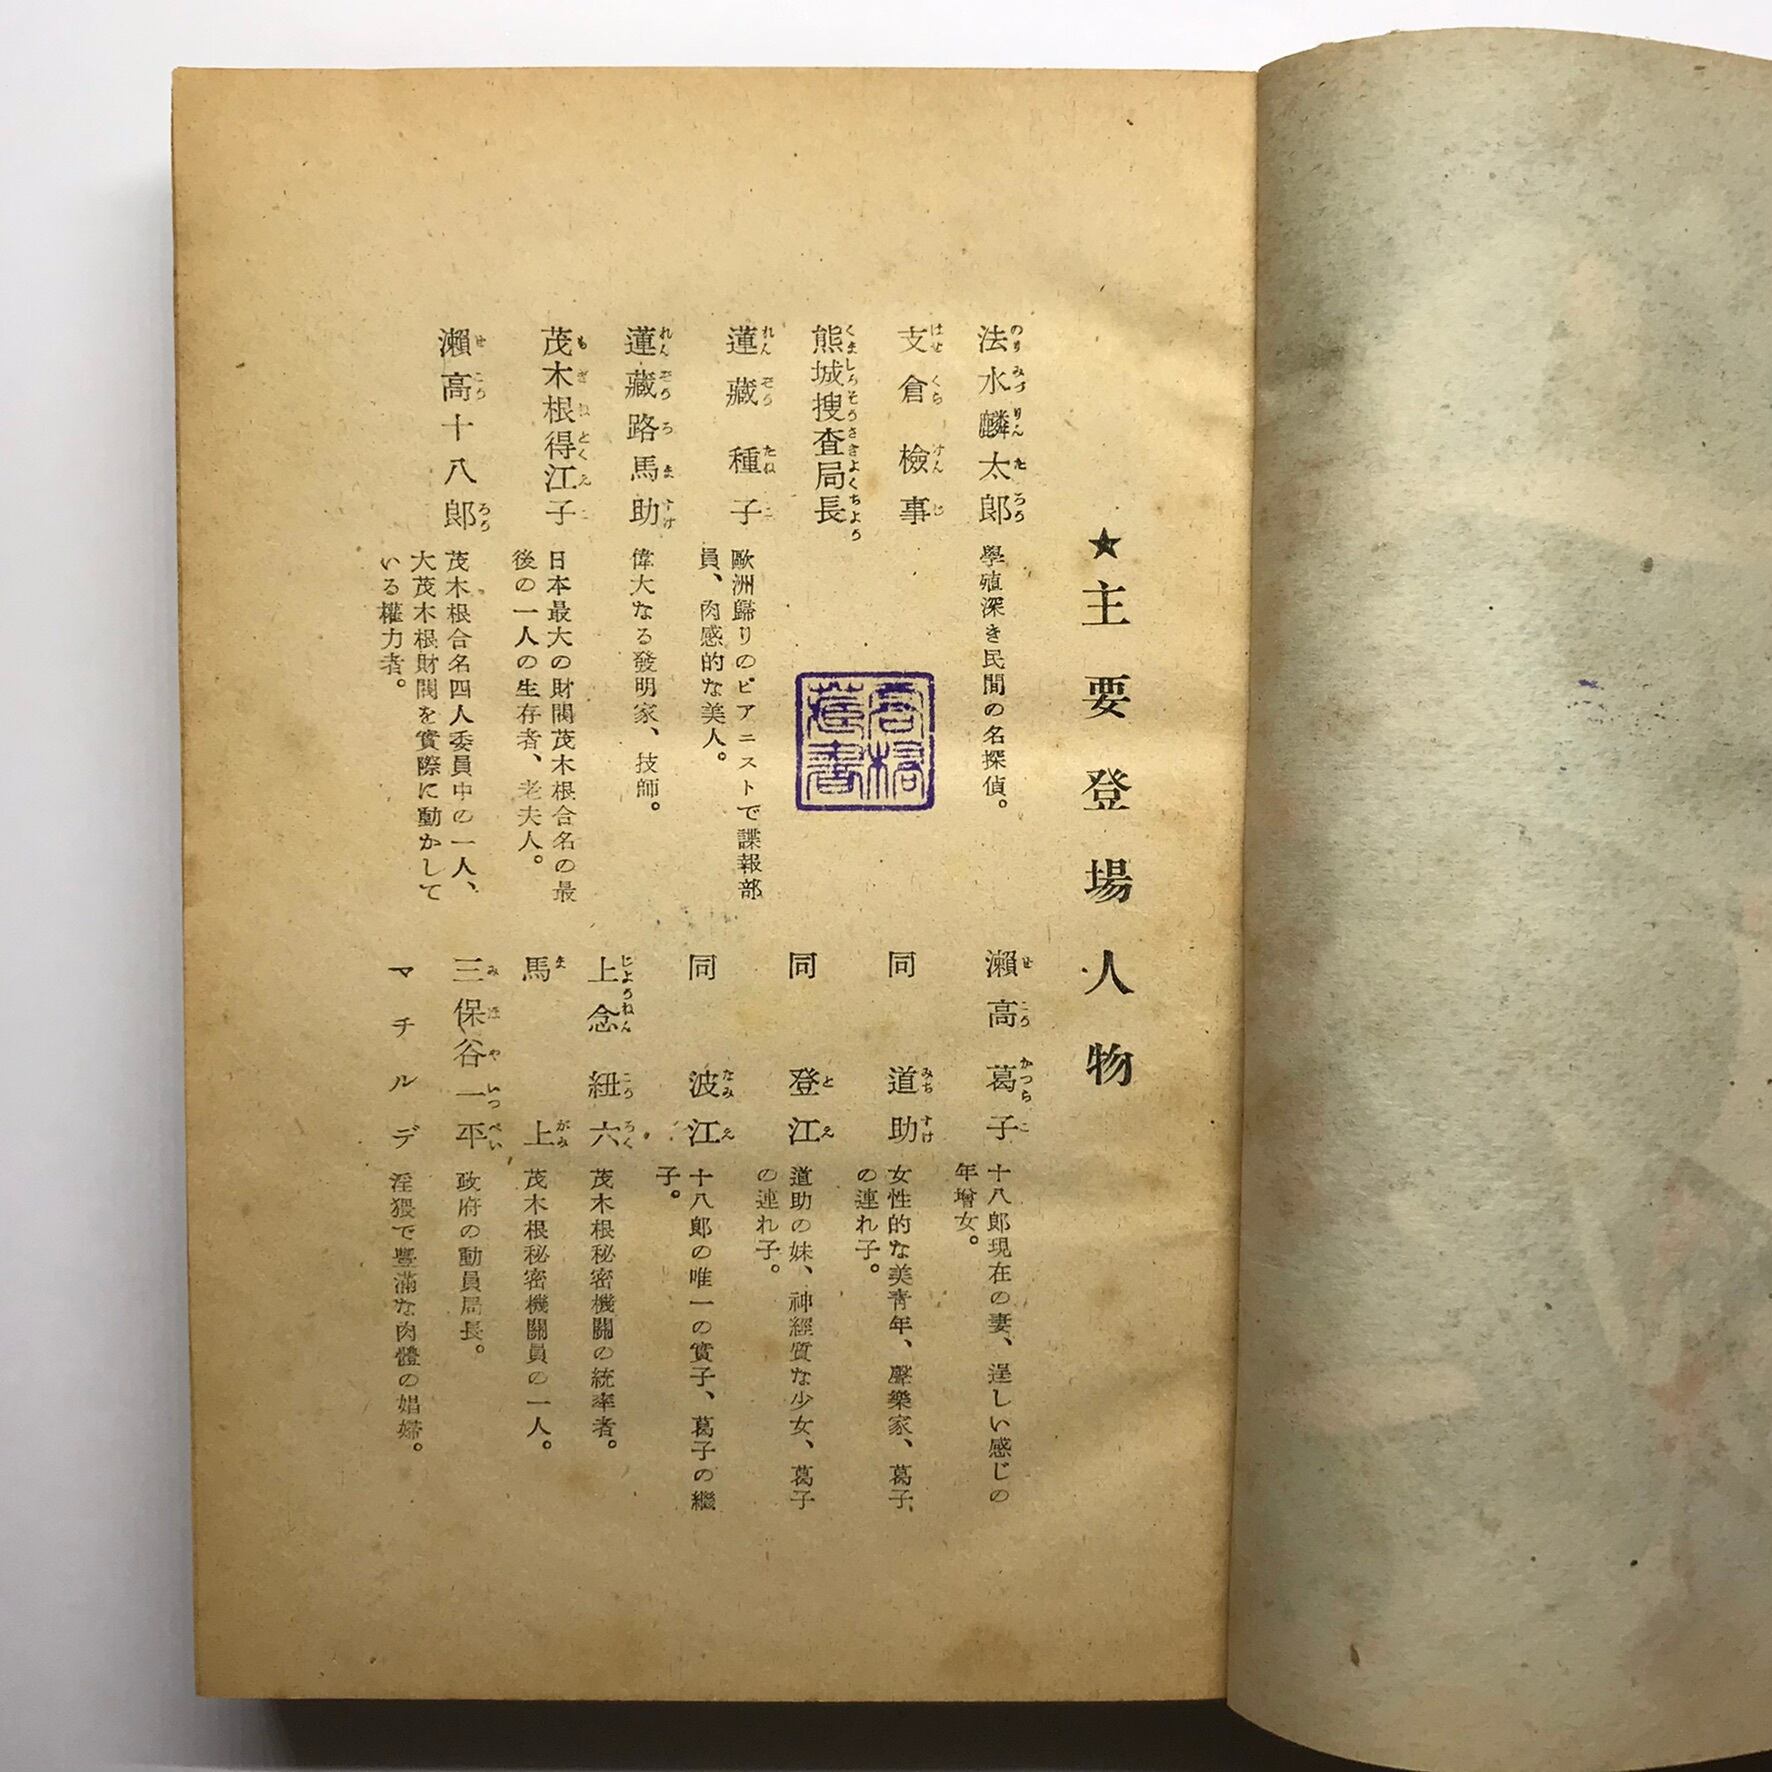 ★主要登場人物
法水麟太郎
學殖深き民間の名探偵。
支倉檢事
熊城搜査局長
蓮藏種子
歐洲歸りのピアニストで諜報部
員、肉感的な美人。
蓮藏路馬助
偉大なる發明家、技師。
茂木根得江子
日本最大の財閥茂木根合名の最
後の一人の生存者、老夫人。
瀨高十八郞
茂木根合名四人委員中の一人、
大茂木根財閥を實際に動かして
いる權力者。
瀨高葛子
十八郞現在の妻、逞しい感じの
年增女。
同道助
女性的な美靑年、聲樂家、葛子
の連れ子。
同登江
道助の妹、神經質な少女、葛子
の連れ子。
同波江
十八郞の唯一の實子、葛子の繼
子。
上念紐六
茂木根秘密機關の統率者。
馬上
茂木根秘密機關員の一人。
三保谷一平
政府の動員局長。
マチルデ
淫猥で豐滿な肉體の娼婦。